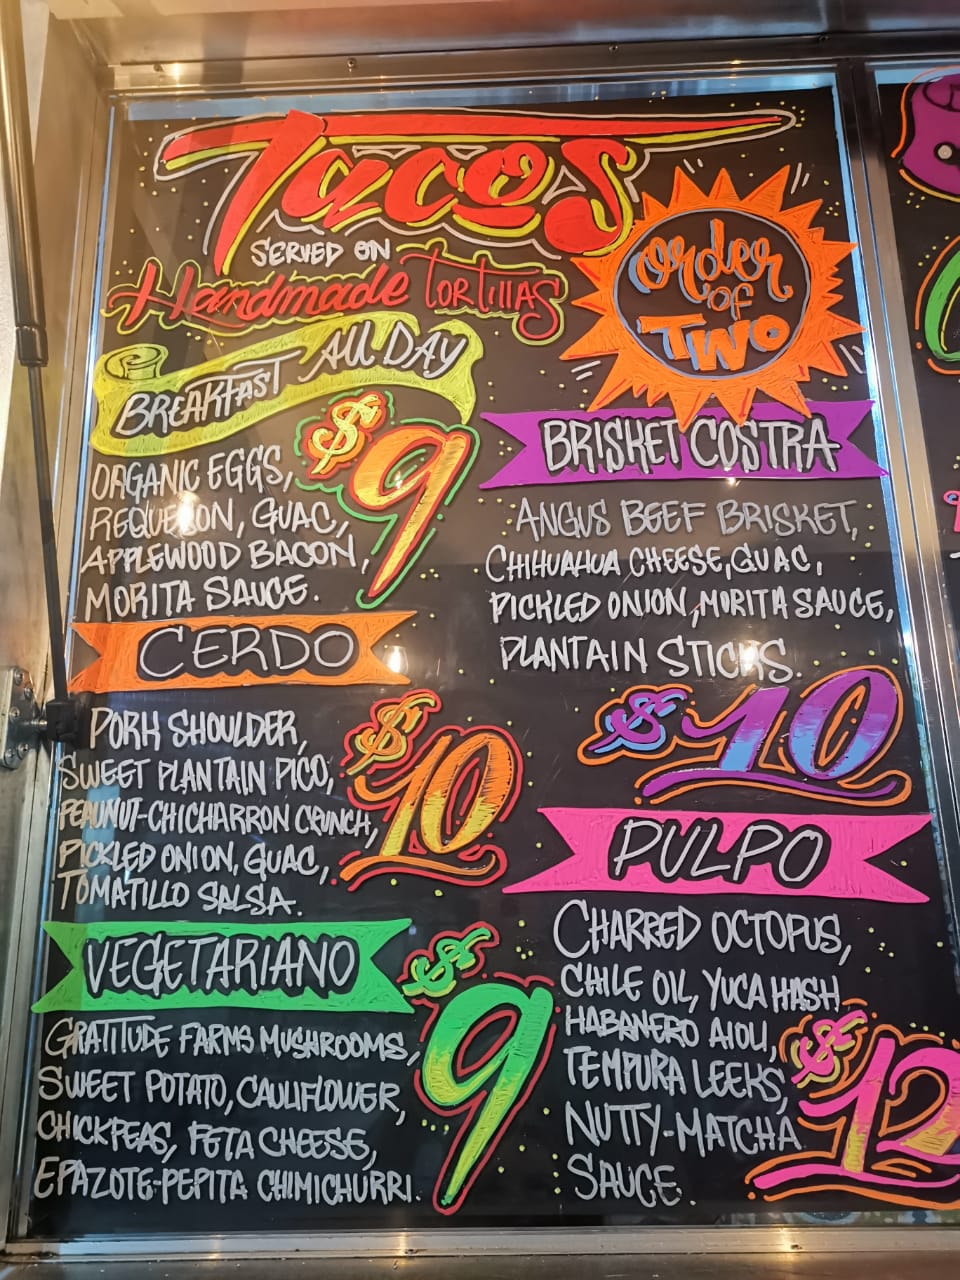 Tacos
SERVED ON
Handmade TORTILLAS
Order
OF
TWO
BREAKFAST ALL DAY
$9
ORGANIC EGGS,
REQUESON, GUAC,
APPLEWOOD BACON,
MORITA SAUCE.
CERDO
PORK SHOULDER,
SWEET PLANTAIN PICO,
PEAUNUT-CHICHARRON CRUNCH,
PICKLED ONION, GUAC,
TOMATILLO SALSA.
$10
VEGETARIANO
GRATITUDE FARMS MUSHROOMS,
SWEET POTATO, CAULIFLOWER,
CHICKPEAS, FETA CHEESE,
EPAZOTE-PEPITA CHIMICHURRI.
$9
BRISKET COSTRA
ANGUS BEEF BRISKET,
CHIHUAHUA CHEESE, GUAC,
PICKLED ONION, MORITA SAUCE,
PLANTAIN STICKS.
$10
PULPO
CHARRED OCTOPUS,
CHILE OIL, YUCA HASH
HABANERO AIOLI,
TEMPURA LEEKS,
NUTTY-MATCHA
SAUCE.
$12